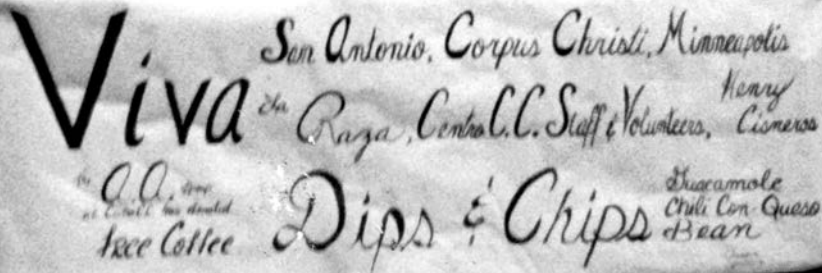 Viva
San Antonio, Corpus Christi, Minneapolis
la Raza, Centro C.C. Staff & Volunteers, Henry Cisneros
A.A. group
has donated
free Coffee
Dips & Chips
Guacamole
Chili Con Queso
Bean